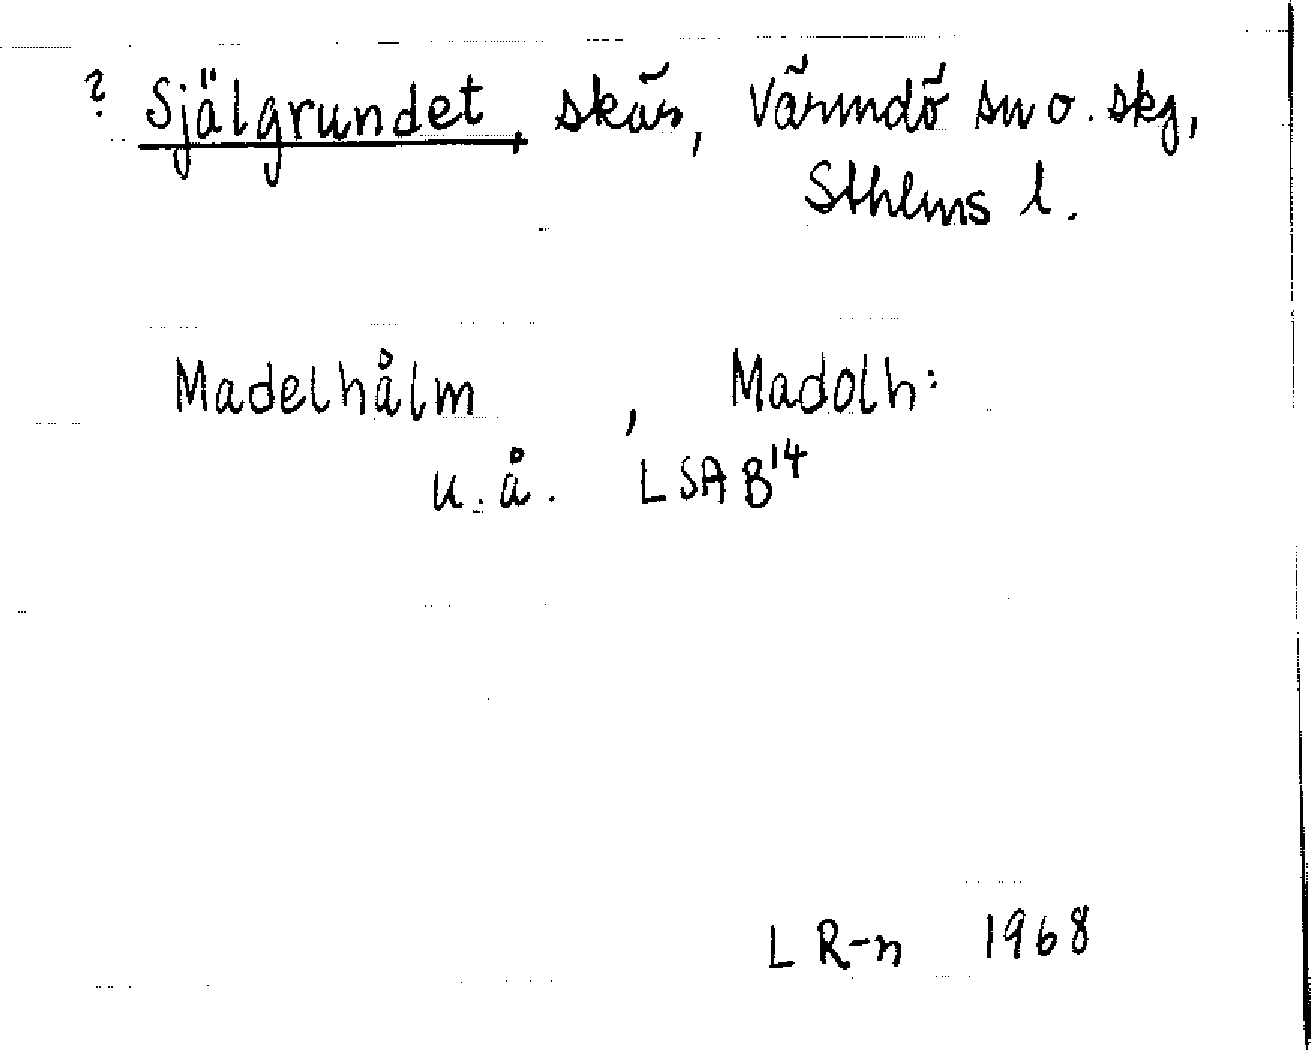 ? Själgrundet, skär, Värmdö sn o. skg,
Sthlms l.
Madelhålm, Madolh:
u.å. LSA B14
L R-n 1968